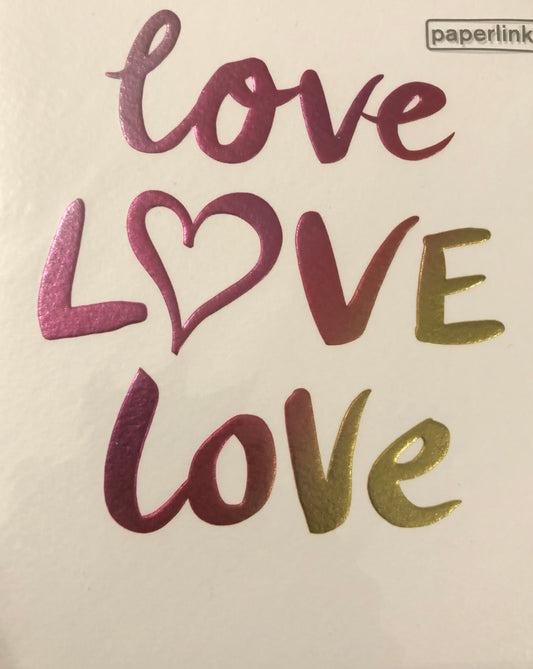 paperlink
love
L♡VE
love